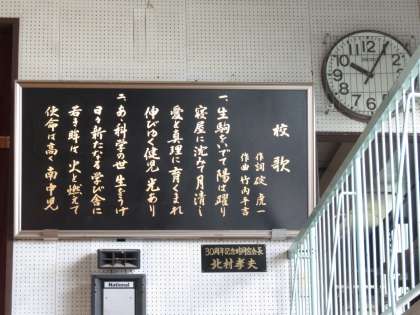 校歌
作詞 碇虎一
作曲 竹内平吉
一、生駒をいでて陽は躍り
寝屋に沈みて月清し
愛と真理に育くまれ
伸びゆく健児光あり
二、あゝ科学の世生をうけ
日々新たなる学び舎に
若き眸は火と燃えて
使命は高く南中児
30周年記念時同窓会長
北村孝夫
National
12
1
2
3
4
5
6
7
8
9
10
11